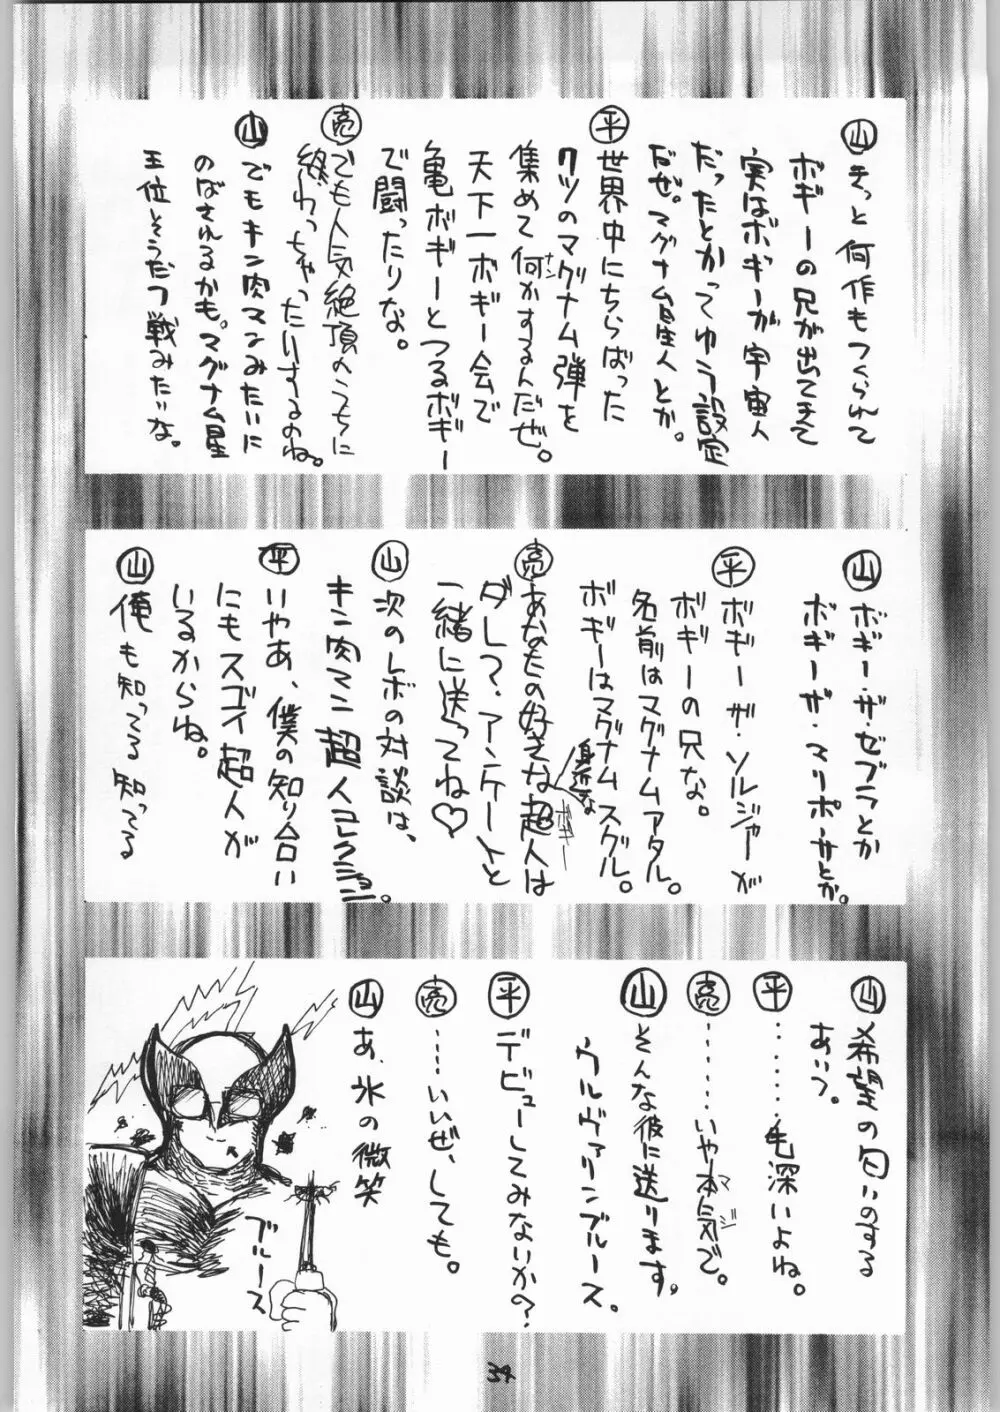 ㊤山 きっと何作もつくられて
ボギーの兄が出てきて
実はボギーが宇宙人
だったとかってゆう設定
だぜ。マグナム星人とか。
平 世界中にちらばった
ワツのマグナム弾を
集めて何かするんだぜ。
ナン
天下一ボギー会で
亀ボギーとつるボギー
で闘ったりな。
亮 でも人気絶頂のうちに
終わっちゃったりするのね。
山 でもキン肉マンみたいに
のばされるかも。マグナム星
王位そうだつ戦みたいな。
山 ボギー・ザ・ゼブラとか
ボギーザ・マリポーサとか。
平 ボギー・ザ・ソルジャーが
ボギーの兄な。
名前はマグナムアタル。
ボギーはマグナムスグル。
亮 あなたの好きな超人は
身近な
ボギー
ダレ?アンケートと
一緒に送ってね♡
山 次のレボの対談は、
キン肉マン超人コレクション。
平 いやあ、僕の知り合い
にもスゴイ超人が
いるからね。
山 俺も知ってる知ってる
山 希望の匂いのする
あいつ。
平 ………毛深いよね。
亮 ………いや本気で。
マジ
山 そんな彼に送ります。
ウルヴァリンブルース。
平 デビューしてみないか?
亮 ……いいぜ、しても。
山 あ、氷の微笑
ブルース
34